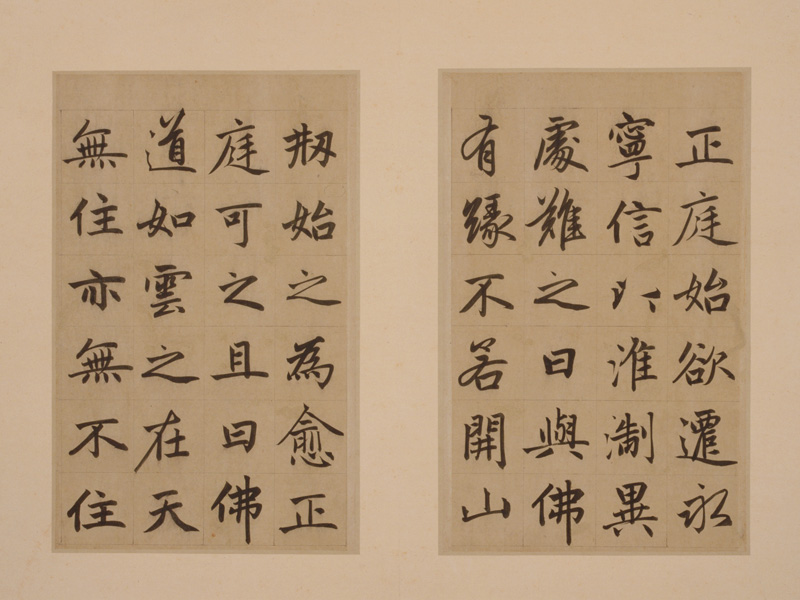 正庭始欲遷永
寧信以淮淛異
處難之曰與佛
有緣不若開山
剏始之為愈正
庭可之且曰佛
道如雲之在天
無住亦無不住